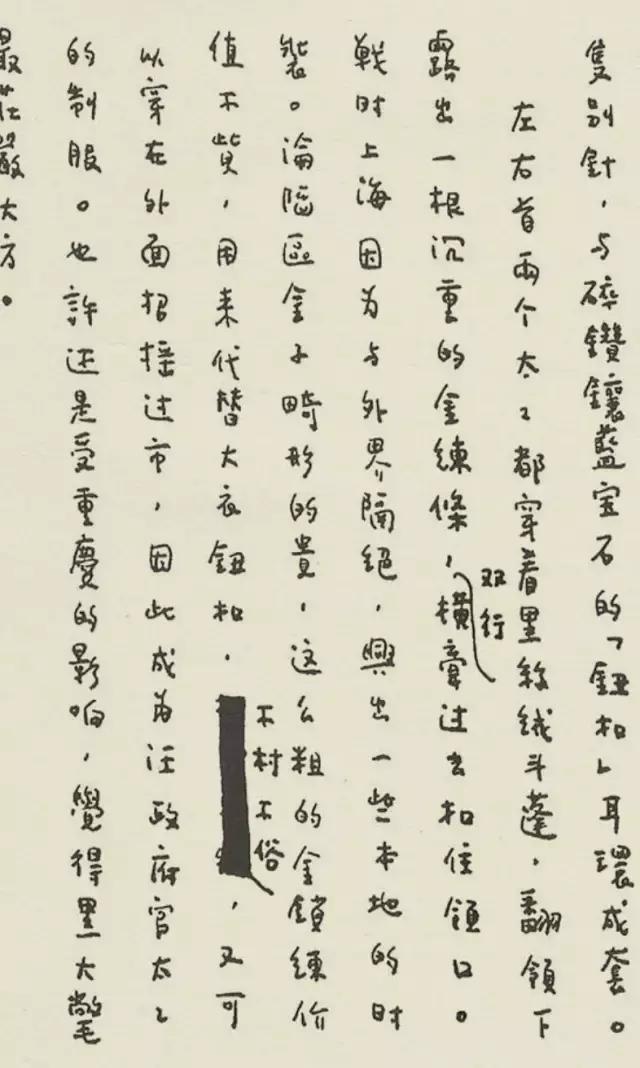 隻别針，与碎鑽鑲藍宝石的「鈕扣」耳環成套。
左右首兩个太〻都穿着黑絲絨斗蓬，翻領下
露出一根沉重的金練條，双行橫牽过去扣住領口。
戰时上海因为与外界隔絕，興出一些本地的时
裝。淪陷區金子畸形的貴，这么粗的金鎖練价
值不貲，用来代替大衣鈕扣，不村不俗，又可
以穿在外面招搖过市，因此成为汪政府官太〻
的制服。也許还是受重慶的影响，覺得黑大氅
最莊嚴大方。